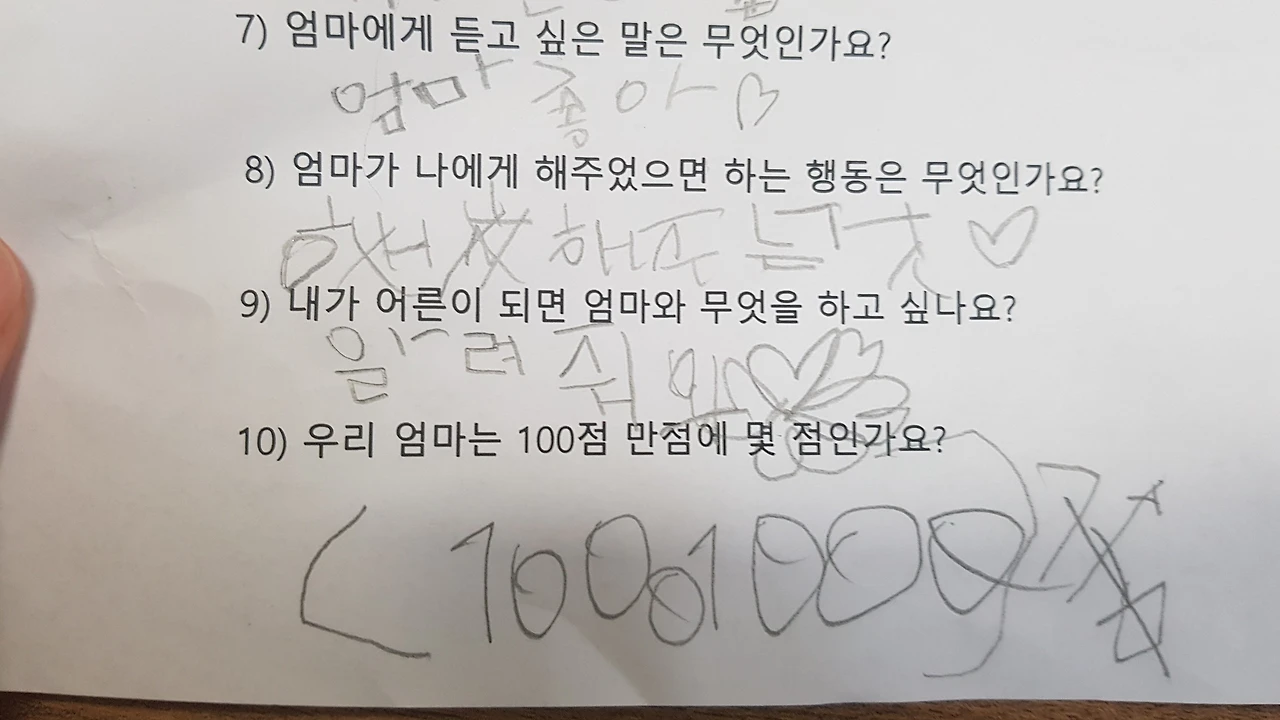 7) 엄마에게 듣고 싶은 말은 무엇인가요?
엄마 좋아♡
8) 엄마가 나에게 해주었으면 하는 행동은 무엇인가요?
해주는거 ♡
9) 내가 어른이 되면 엄마와 무엇을 하고 싶나요?
10) 우리 엄마는 100점 만점에 몇 점인가요?
(10001000)